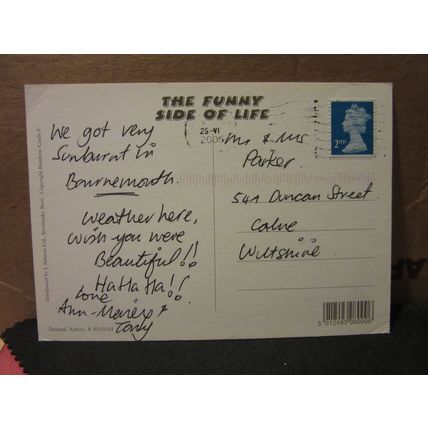 THE FUNNY
SIDE OF LIFE
25-VI
2005
2ND
We got very
Sunburnt in
Bournemouth.
Weather here,
wish you were
Beautiful!!
Ha Ha Ha!!
Love
Ann-Marie &
Tony
Mr & Mrs
Parker.
54A Duncan Street.
Calne
Wiltshire
Animal Antics 8 10:03:01
Distributed by J. Salmon Ltd., Sevenoaks, Kent. Copyright Rainbow Cards ©
5 012493 080006